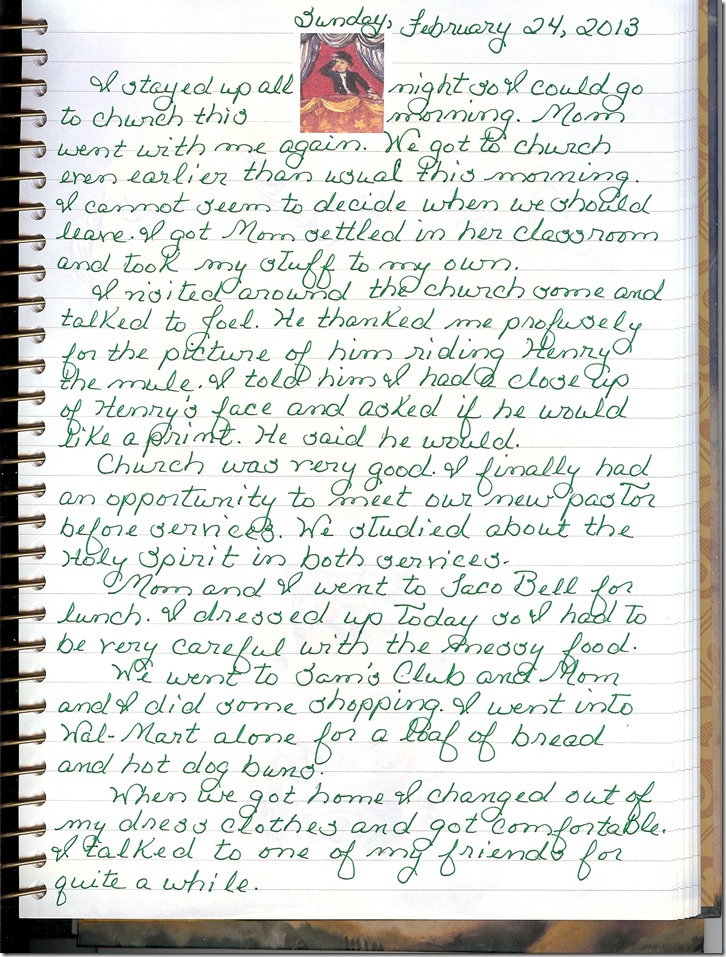 Sunday, February 24, 2013
I stayed up all night so I could go
to church this morning. Mom
went with me again. We got to church
even earlier than usual this morning.
I cannot seem to decide when we should
leave. I got Mom settled in her classroom
and took my stuff to my own.
I visited around the church some and
talked to Joel. He thanked me profusely
for the picture of him riding Henry
the mule. I told him I had a close up
of Henry's face and asked if he would
like a print. He said he would.
Church was very good. I finally had
an opportunity to meet our new pastor
before services. We studied about the
Holy Spirit in both services.
Mom and I went to Taco Bell for
lunch. I dressed up today so I had to
be very careful with the messy food.
We went to Sam's Club and Mom
and I did some shopping. I went into
Wal-Mart alone for a loaf of bread
and hot dog buns.
When we got home I changed out of
my dress clothes and got comfortable.
I talked to one of my friends for
quite a while.